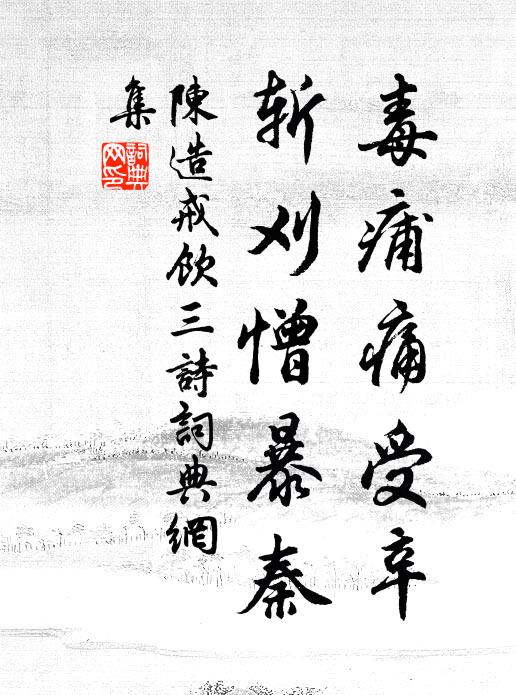 毒痡痛受辛
斬刈憎暴秦
陳造戒飲三詩詞典網
集
詞典
网印